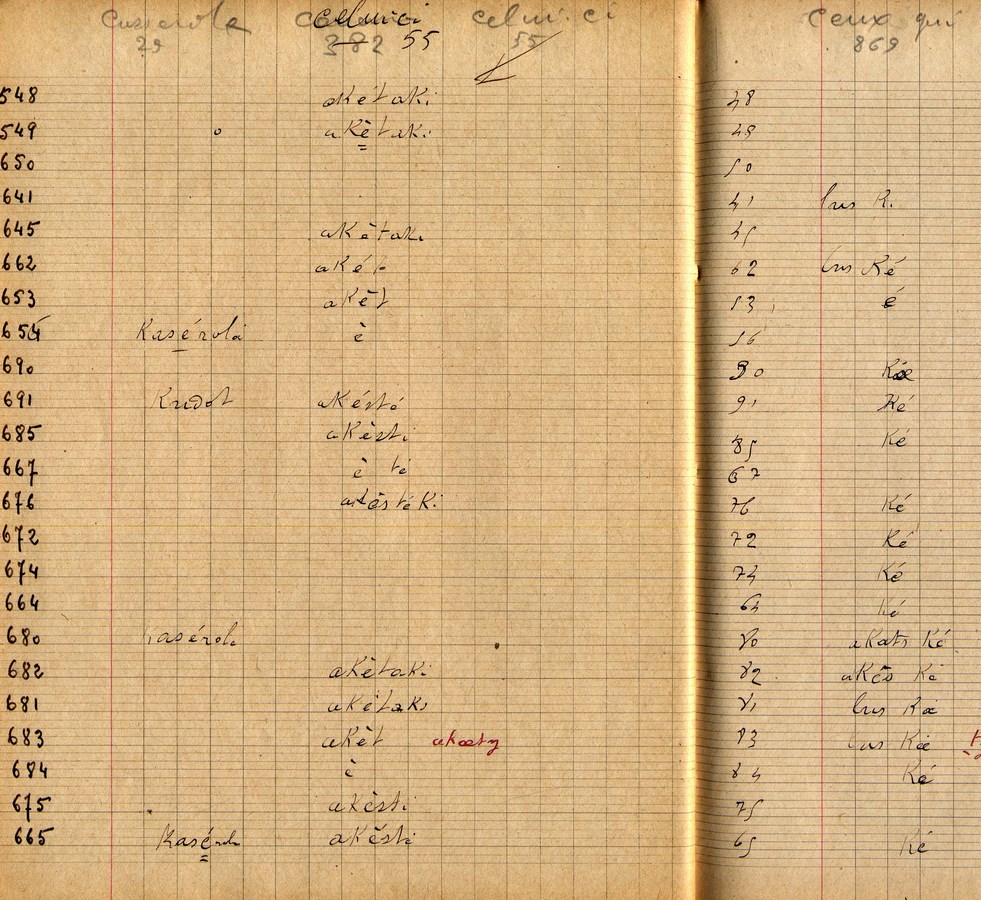 casserole celui ci celui. ci ceux qui
29 382 55 55 869
548 akétaki 48
549 o akètaki 49
650 50
641 41 lus K.
645 akètaki 45
662 akét 62 lus Ké
653 akèt 53 é
654 Kasérola è 56
690 90
691 Krudot akésté 91 Ké
685 akèsti 85 Ké
667 è té 67
676 akèstéki 76 Ké
672 72 Ké
674 74 Ké
664 64 Ké
680 kasérola 80 akats Ké
682 akètaki 82 akès Ké
681 akétaki 81 lus Ké
683 akèt akœty 83 lus Ké
684 è 84 Ké
675 akèsti 75
665 Kasérola akèsti 65 Ké